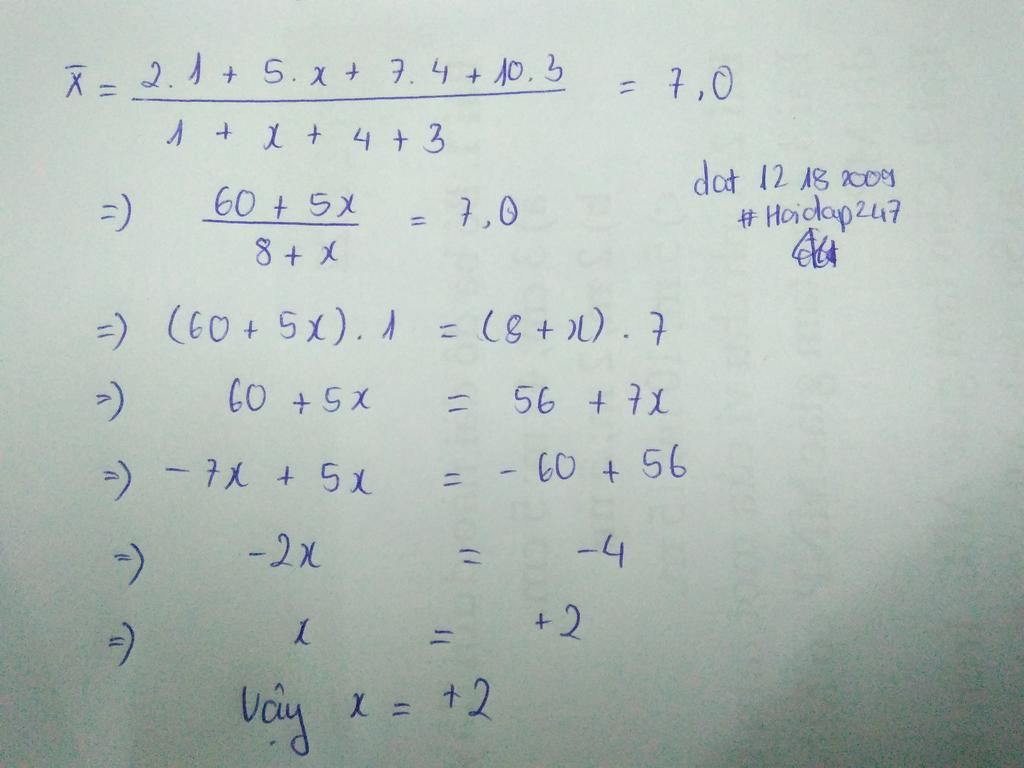 x̄ = (2.1 + 5.x + 7.4 + 10.3) / (1 + x + 4 + 3) = 7,0
dat 12 18 2009
#Hoidap247
=) (60 + 5x) / (8 + x) = 7,0
=) (60 + 5x).1 = (8 + x).7
=) 60 + 5x = 56 + 7x
=) -7x + 5x = -60 + 56
=) -2x = -4
=) x = +2
Vậy x = +2